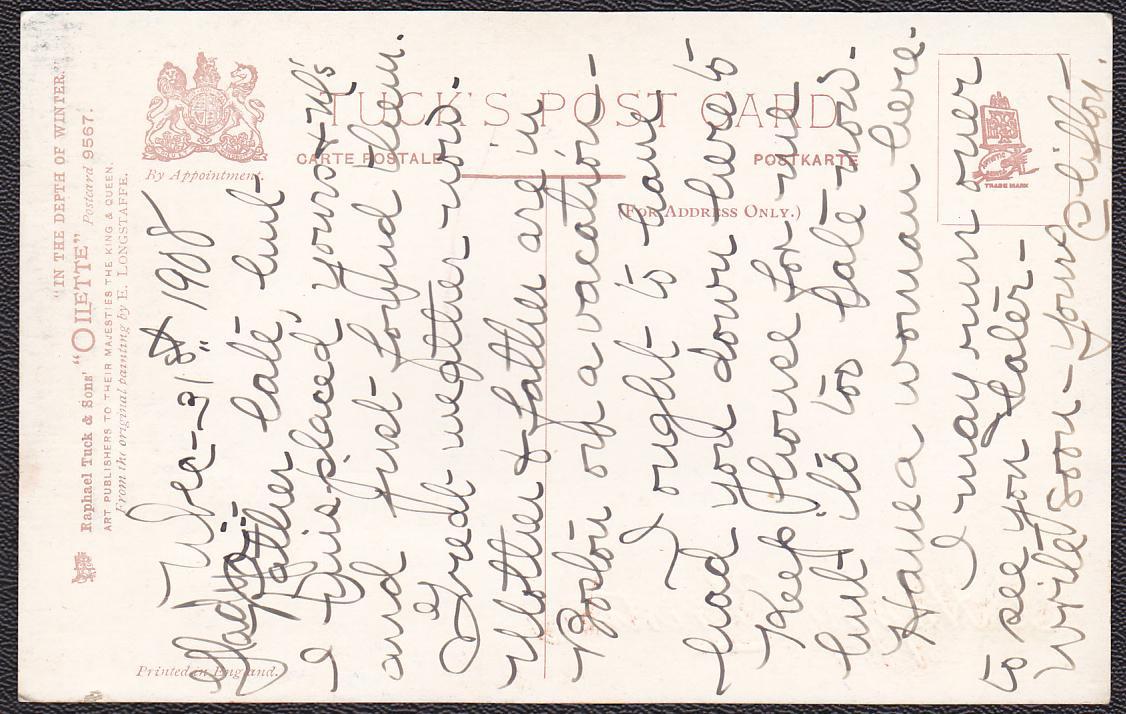 "IN THE DEPTH OF WINTER."
Raphael Tuck & Sons' "OILETTE" Postcard 9567.
ART PUBLISHERS TO THEIR MAJESTIES THE KING & QUEEN.
From the original painting by E. LONGSTAFFE.
By Appointment.
TUCK'S POST CARD
CARTE POSTALE
POSTKARTE
(FOR ADDRESS ONLY.)
TRADE MARK
Printed in England.
Dec - 31st 1908
Rather late, but
I displaced yours &
and just found them.
Great weather now.
Mother & father are in
Boston on a vacation -
I ought to have
had you down here to
Keep House for me
but its too late now.
Have a woman here -
I may run over
to see you later -
Write soon - yours
Clifton.